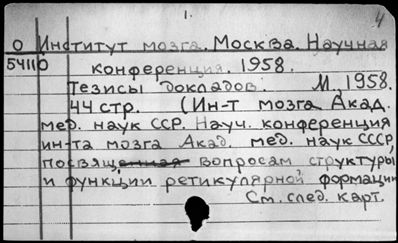 1.
4
О Институт мозга. Москва. Научная
54110 конференция. 1958.
Тезисы докладов. М. 1958.
44 стр. (Ин-т мозга Акад.
мед. наук ССР. Науч. конференция
ин-та мозга Акад. мед. наук СССР,
посвященная вопросам структуры
и функции ретикулярной формации
См. след. карт.